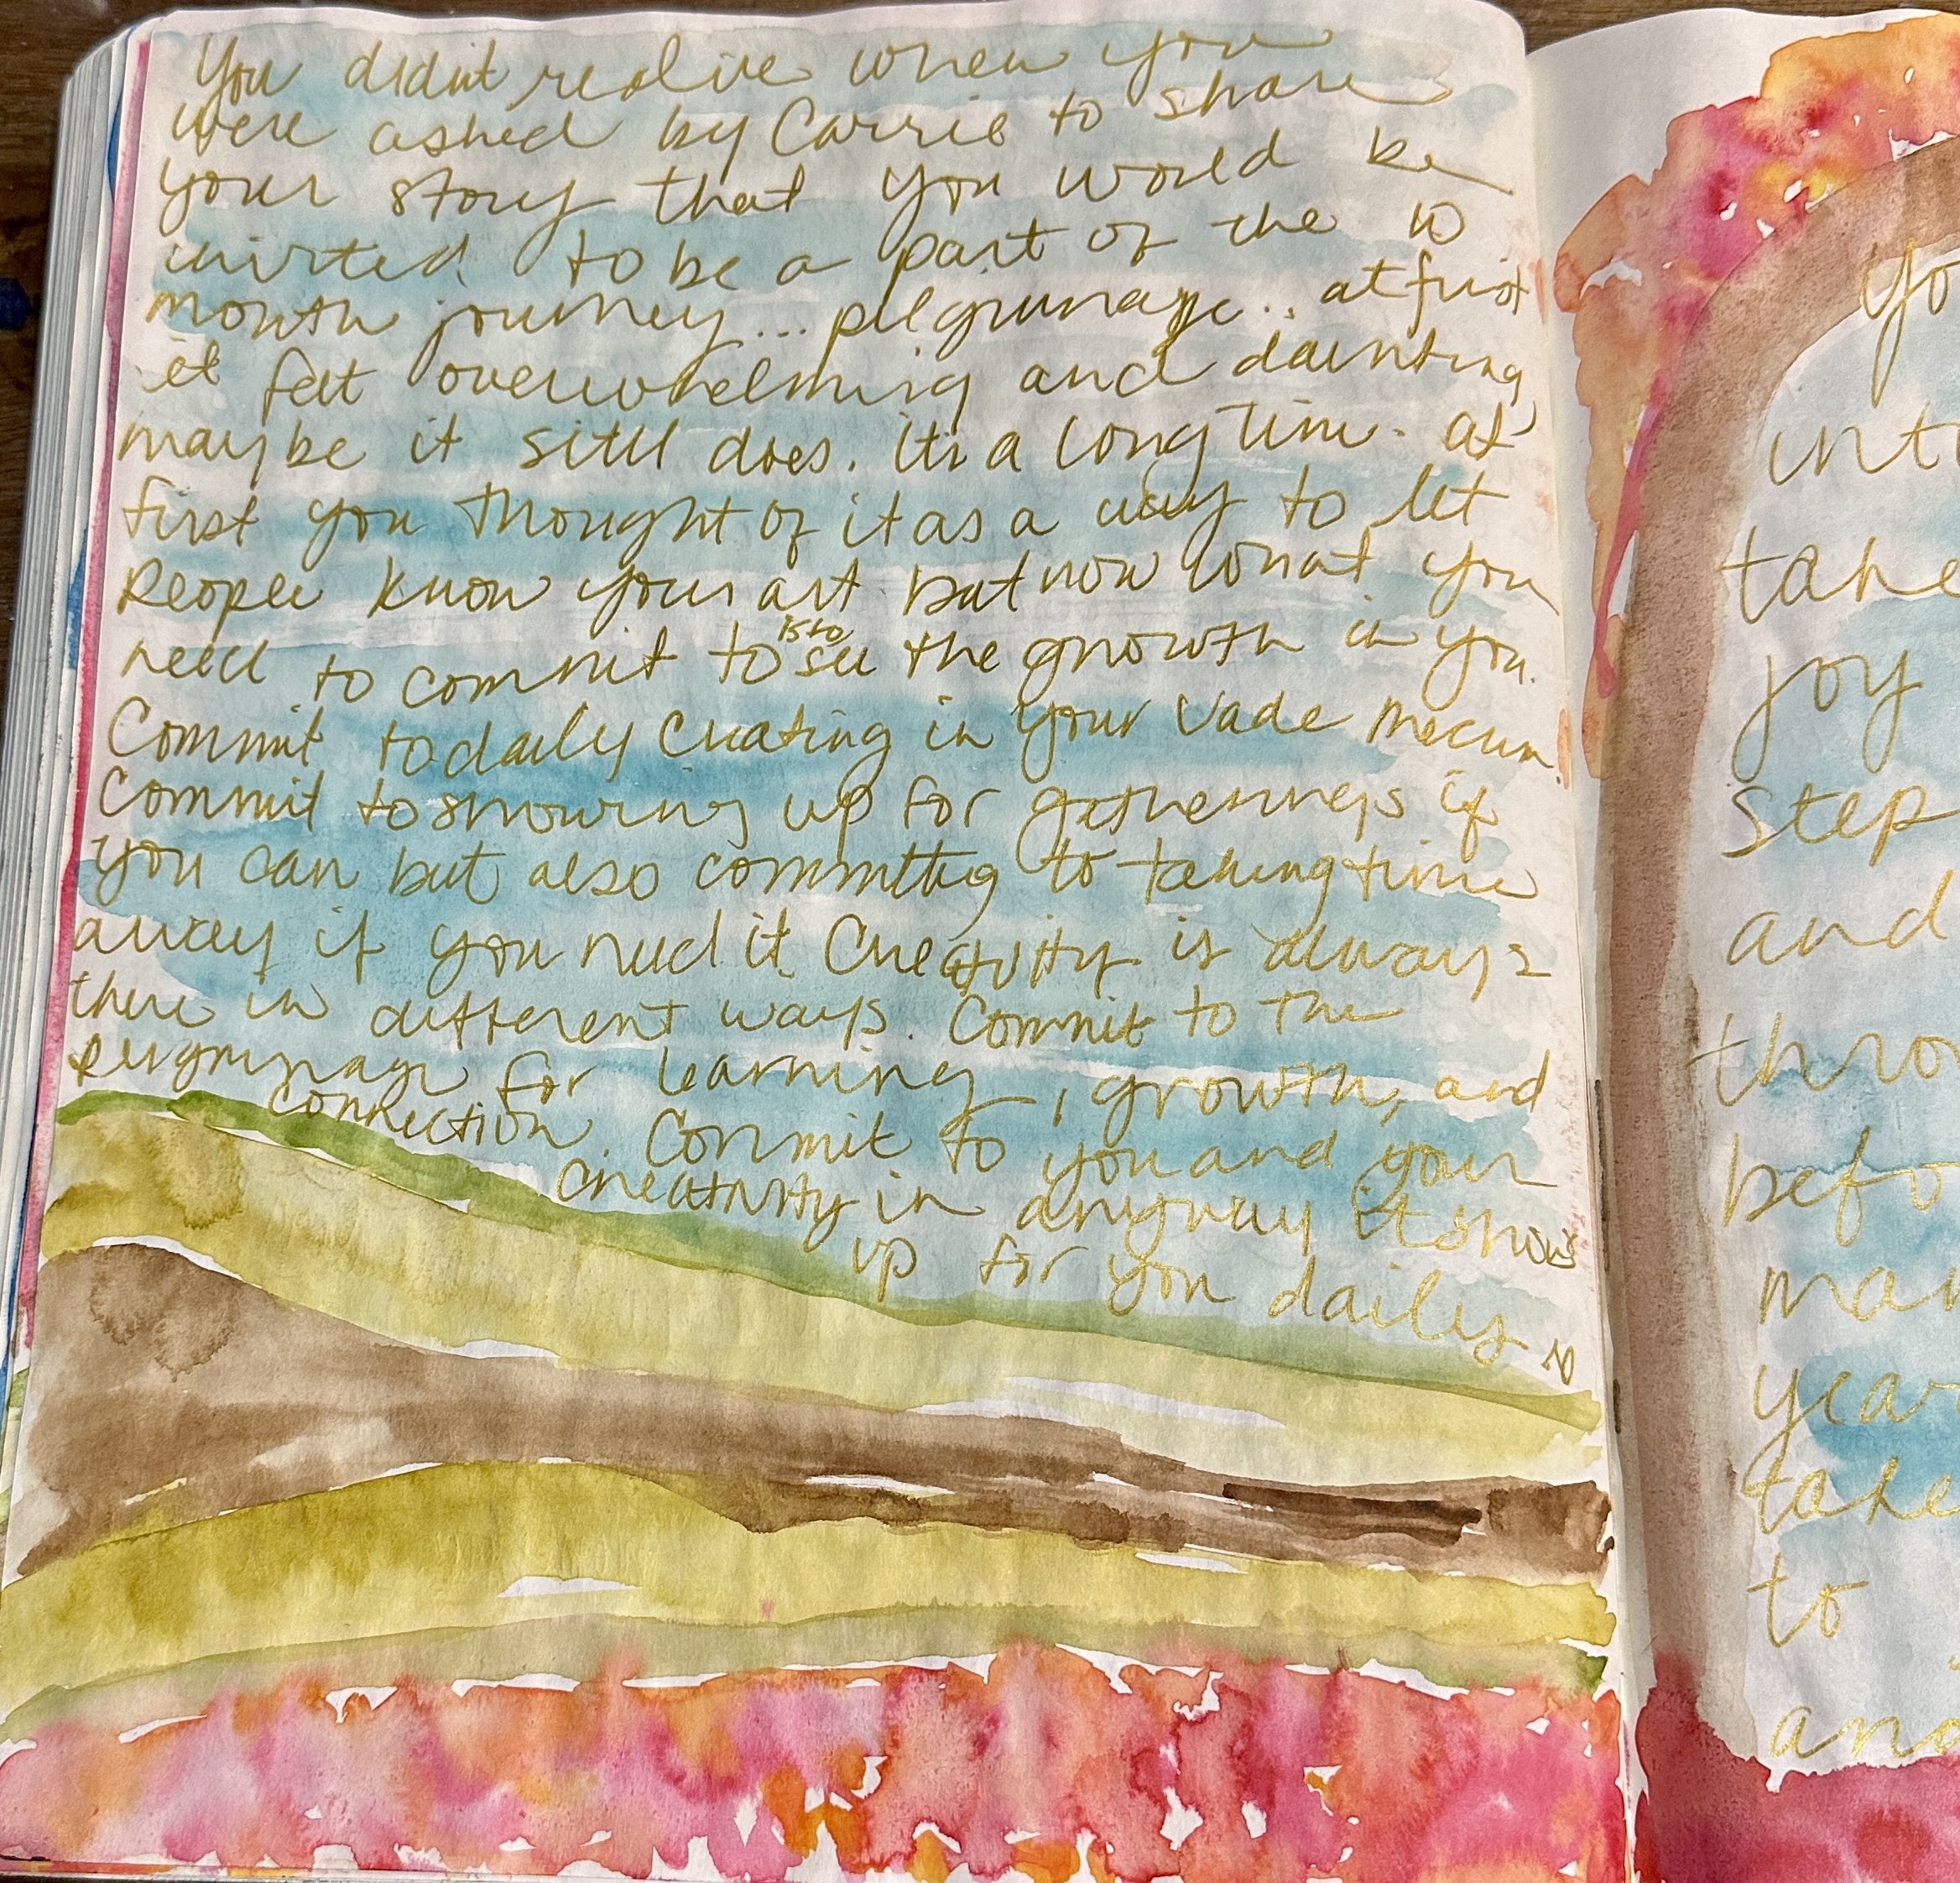 You didnt realize when you
were asked by Carrie to share
your story that you would be
invited to be a part of the 10
month journey... pilgrimage.. at first
it felt overwhelming and daunting
maybe it still does. It's a long time. at
first you thought of it as a way to let
people know your art but now what you
need to commit to is to see the growth in you.
Commit to daily creating in your Vade Mecum.
Commit to showing up for gatherings if
you can but also committing to taking time
away if you need it. Creativity is always
there in different ways. Commit to the
pilgrimage for learning, growth, and
connection. Commit to you and your
creativity in anyway it shows
up for you daily
yo
into
take
joy
step
and
thro
befo
man
year
take
to
and